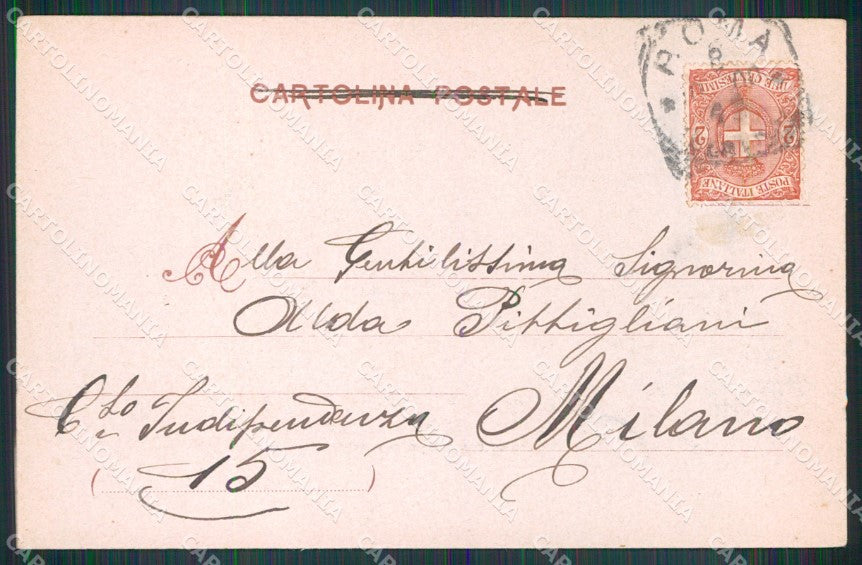 ROMA
CARTOLINA POSTALE
DUE CENTESIMI
2 2
POSTE ITALIANE
Alla Gentilissima Signorina
Alda Pittigliani
C.so Indipendenza Milano
(15)
CARTOLINOMANIA